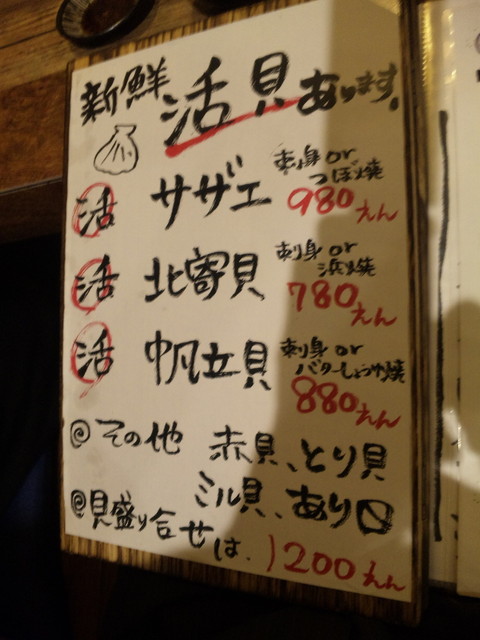 新鮮 活貝あります。
活 サザエ 刺身or つぼ焼 980えん
活 北寄貝 刺身or 浜焼 780えん
活 帆立貝 刺身or バターしょうゆ焼 880えん
◎その他 赤貝、とり貝
ミル貝、あり〼
◎貝盛り合せは、1200えん